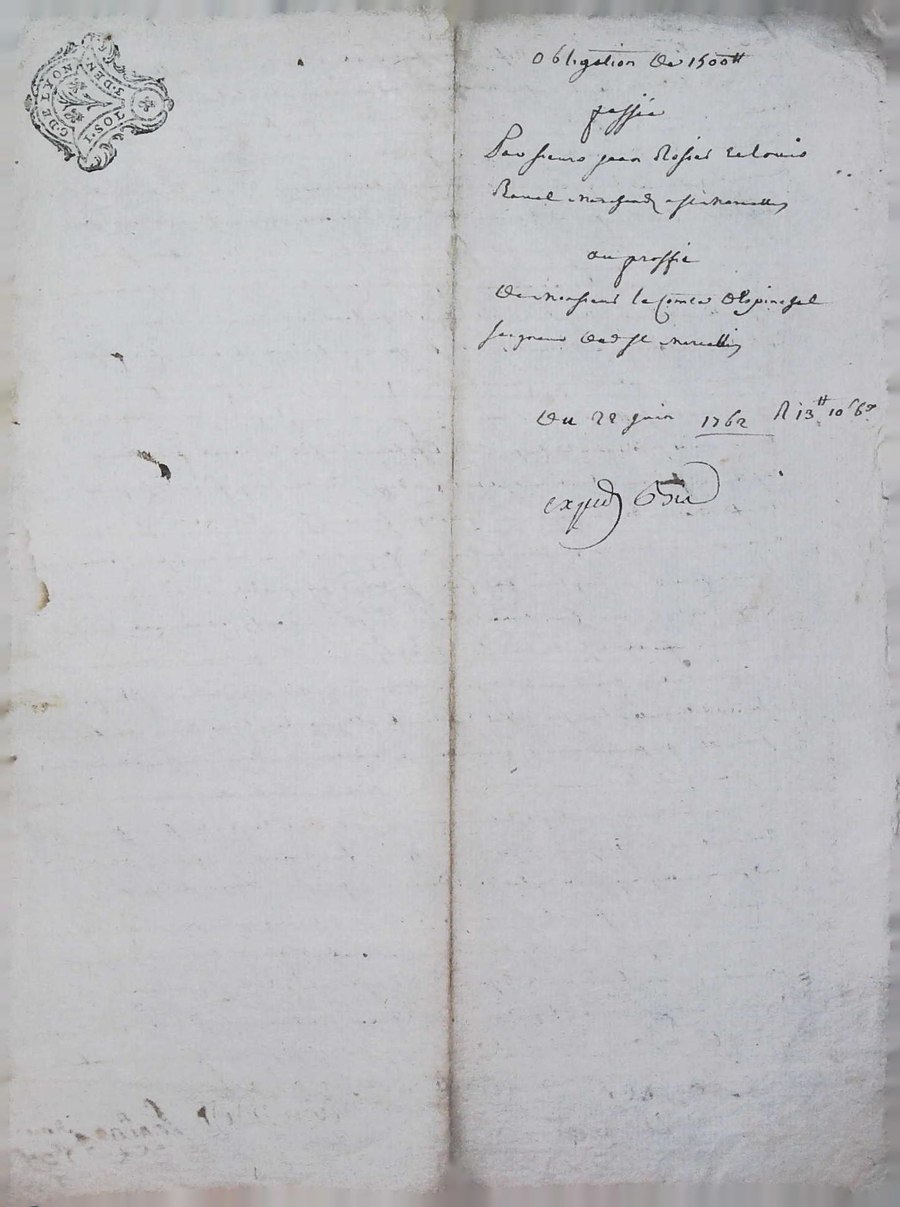 G. DE LYON
1. SOL
3. DEN.
obligation de 1500 ^tt
passée
Par sieurs jean Rosier et Louis
Ravel marchands a st Marcellin
au proffit
de monsieur le Comte d'Espinchal
seigneur dud st Marcellin
du 22 juin 1762 R 13 ^tt 10 ^s 6 ^d
exped